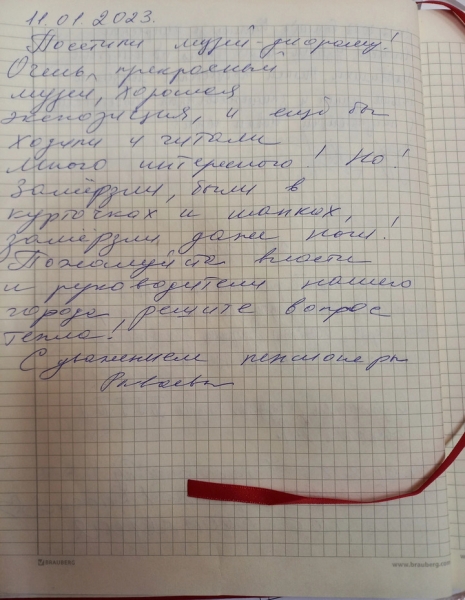 11.01.2023.
Посетили музей-диораму!
Очень прекрасный
музей, хорошая
экспозиция, и ещё бы
ходили и читали
много интересного! Но!
Замёрзли, были в
курточках и шапках,
замёрзли даже ноги!
Пожалуйста власти
и руководители нашего
города, решите вопрос
тепла!
С уважением пенсионеры
BRAUBERG
www.brauberg.com